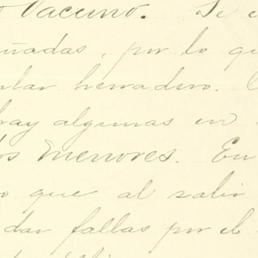 Vacuno. Se
por lo qu
herradero.
hay algunas en
os Menores. En
o que al salir
dar fallas por el